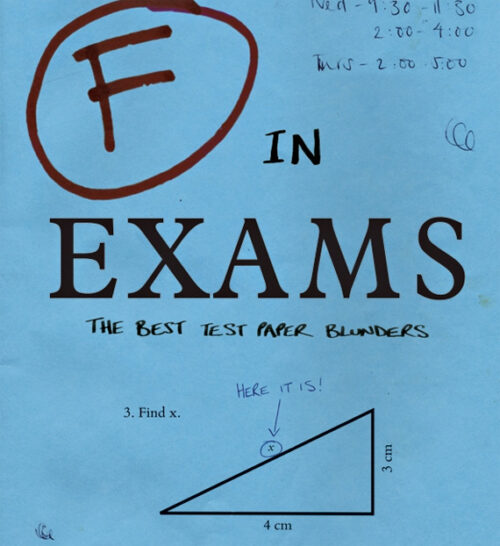 F
Wed - 9:30 - 11:30
2:00 - 4:00
Thurs - 2:00 - 5:00
IN
EXAMS
THE BEST TEST PAPER BLUNDERS
HERE IT IS!
3. Find x.
x
3 cm
4 cm